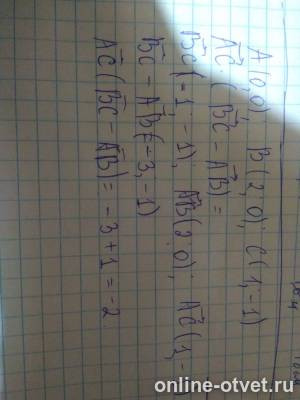 A(0,0) B(2,0); C(1,-1)
A⃗C · (B⃗C - A⃗B) =
B⃗C(-1; -1), A⃗B(2 0); A⃗C(1, -1)
B⃗C - A⃗B(-3, -1)
A⃗C(B⃗C - A⃗B) = -3+1 = -2
online-otvet.ru